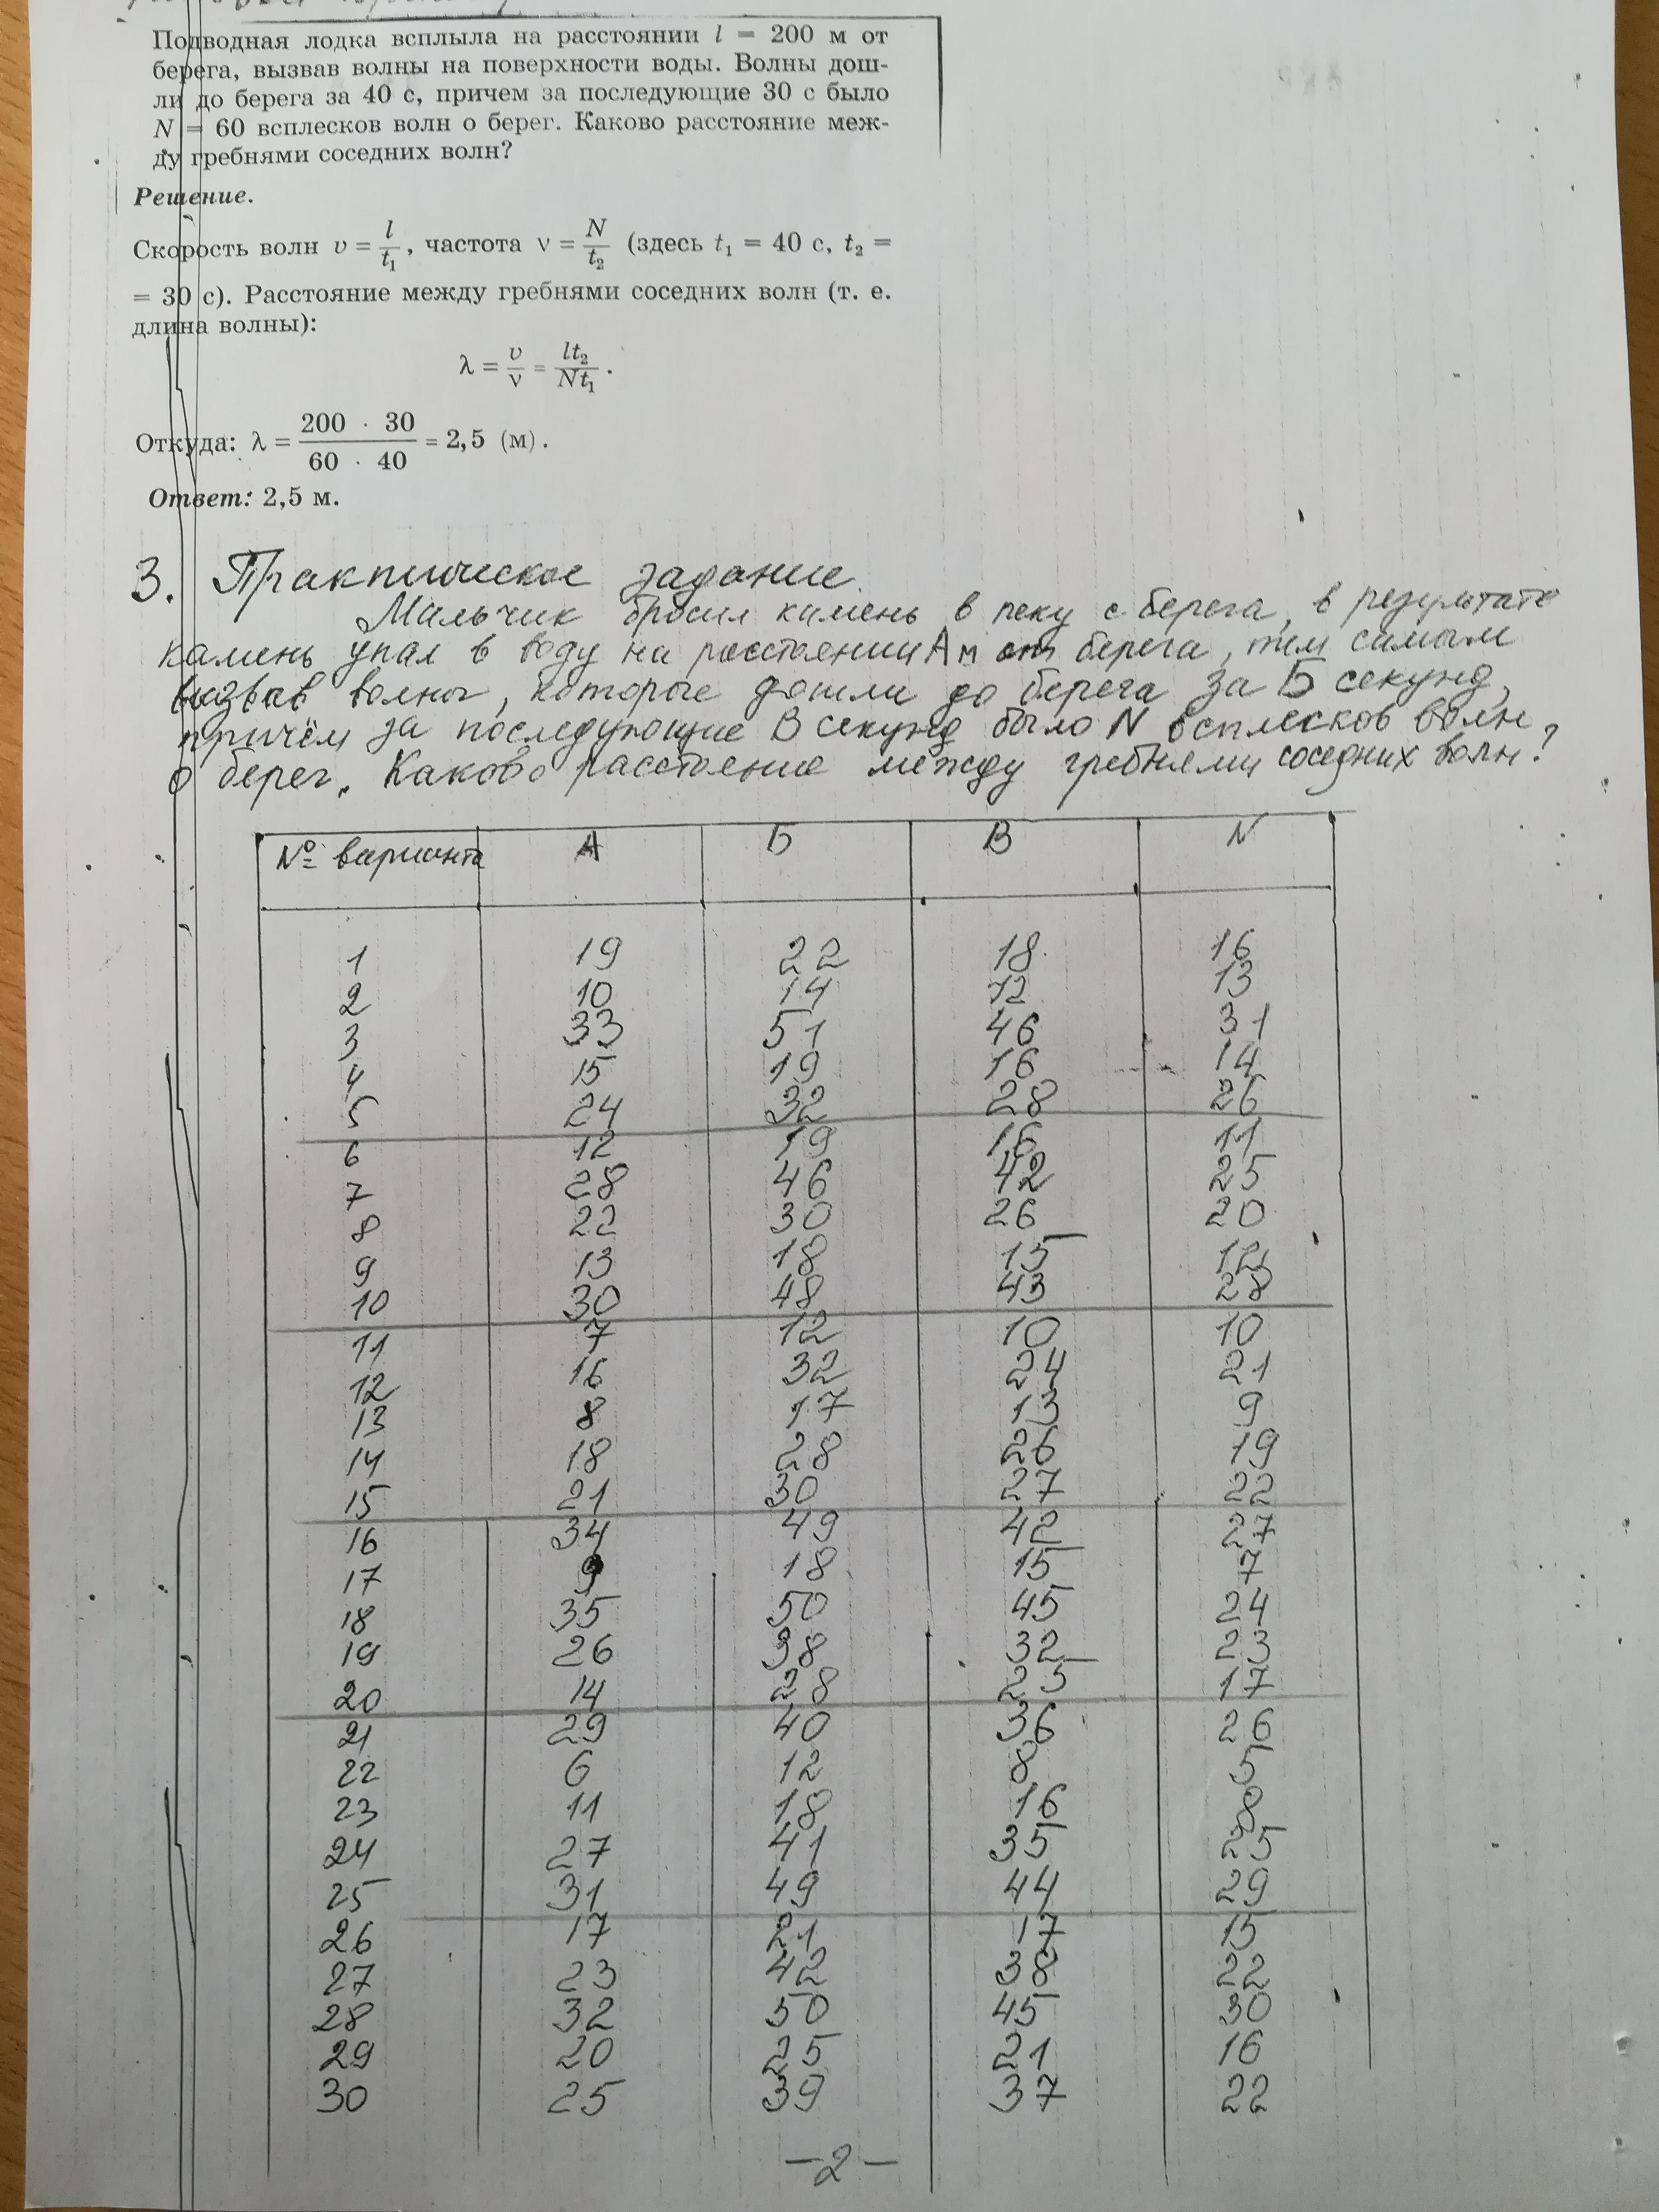 Подводная лодка всплыла на расстоянии l = 200 м от
берега, вызвав волны на поверхности воды. Волны дош-
ли до берега за 40 с, причем за последующие 30 с было
N = 60 всплесков волн о берег. Каково расстояние меж-
ду гребнями соседних волн?
Решение.
Скорость волн υ = l/t₁, частота ν = N/t₂ (здесь t₁ = 40 с, t₂ =
= 30 с). Расстояние между гребнями соседних волн (т. е.
длина волны):
λ = υ/ν = lt₂/Nt₁.
Откуда: λ = 200 · 30 / 60 · 40 = 2,5 (м).
Ответ: 2,5 м.
3. Практическое задание.
Мальчик бросил камень в реку с берега, в результате
камень упал в воду на расстоянии А м от берега, тем самым
вызвав волны, которые дошли до берега за Б секунд,
причём за последующие В секунд было N всплесков волн
о берег. Каково расстояние между гребнями соседних волн?
№ варианта А Б В N
1 19 22 18 16
2 10 14 12 13
3 33 51 46 31
4 15 19 16 14
5 24 32 28 26
6 12 19 16 11
7 28 46 42 25
8 22 30 26 20
9 13 18 15 12
10 30 48 43 28
11 7 12 10 10
12 16 32 24 21
13 8 17 13 9
14 18 28 26 19
15 21 30 27 22
16 34 49 42 27
17 9 18 15 7
18 35 50 45 24
19 26 38 32 23
20 14 28 25 17
21 29 40 36 26
22 6 12 8 5
23 11 18 16 8
24 27 41 35 25
25 31 49 44 29
26 17 21 17 15
27 23 42 38 22
28 32 50 45 30
29 20 25 21 16
30 25 39 37 22
-2-